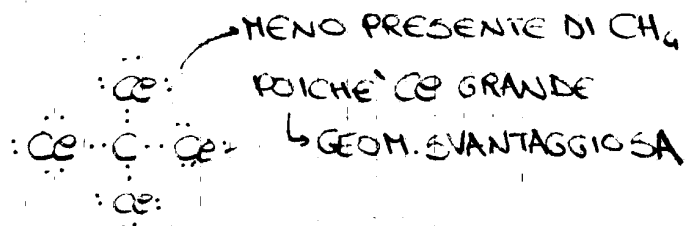 MENO PRESENTE DI CH₄
POICHE' Cl GRANDE
↳ GEOM. SVANTAGGIOSA
:Cl:
:Cl··C··Cl:
:Cl: